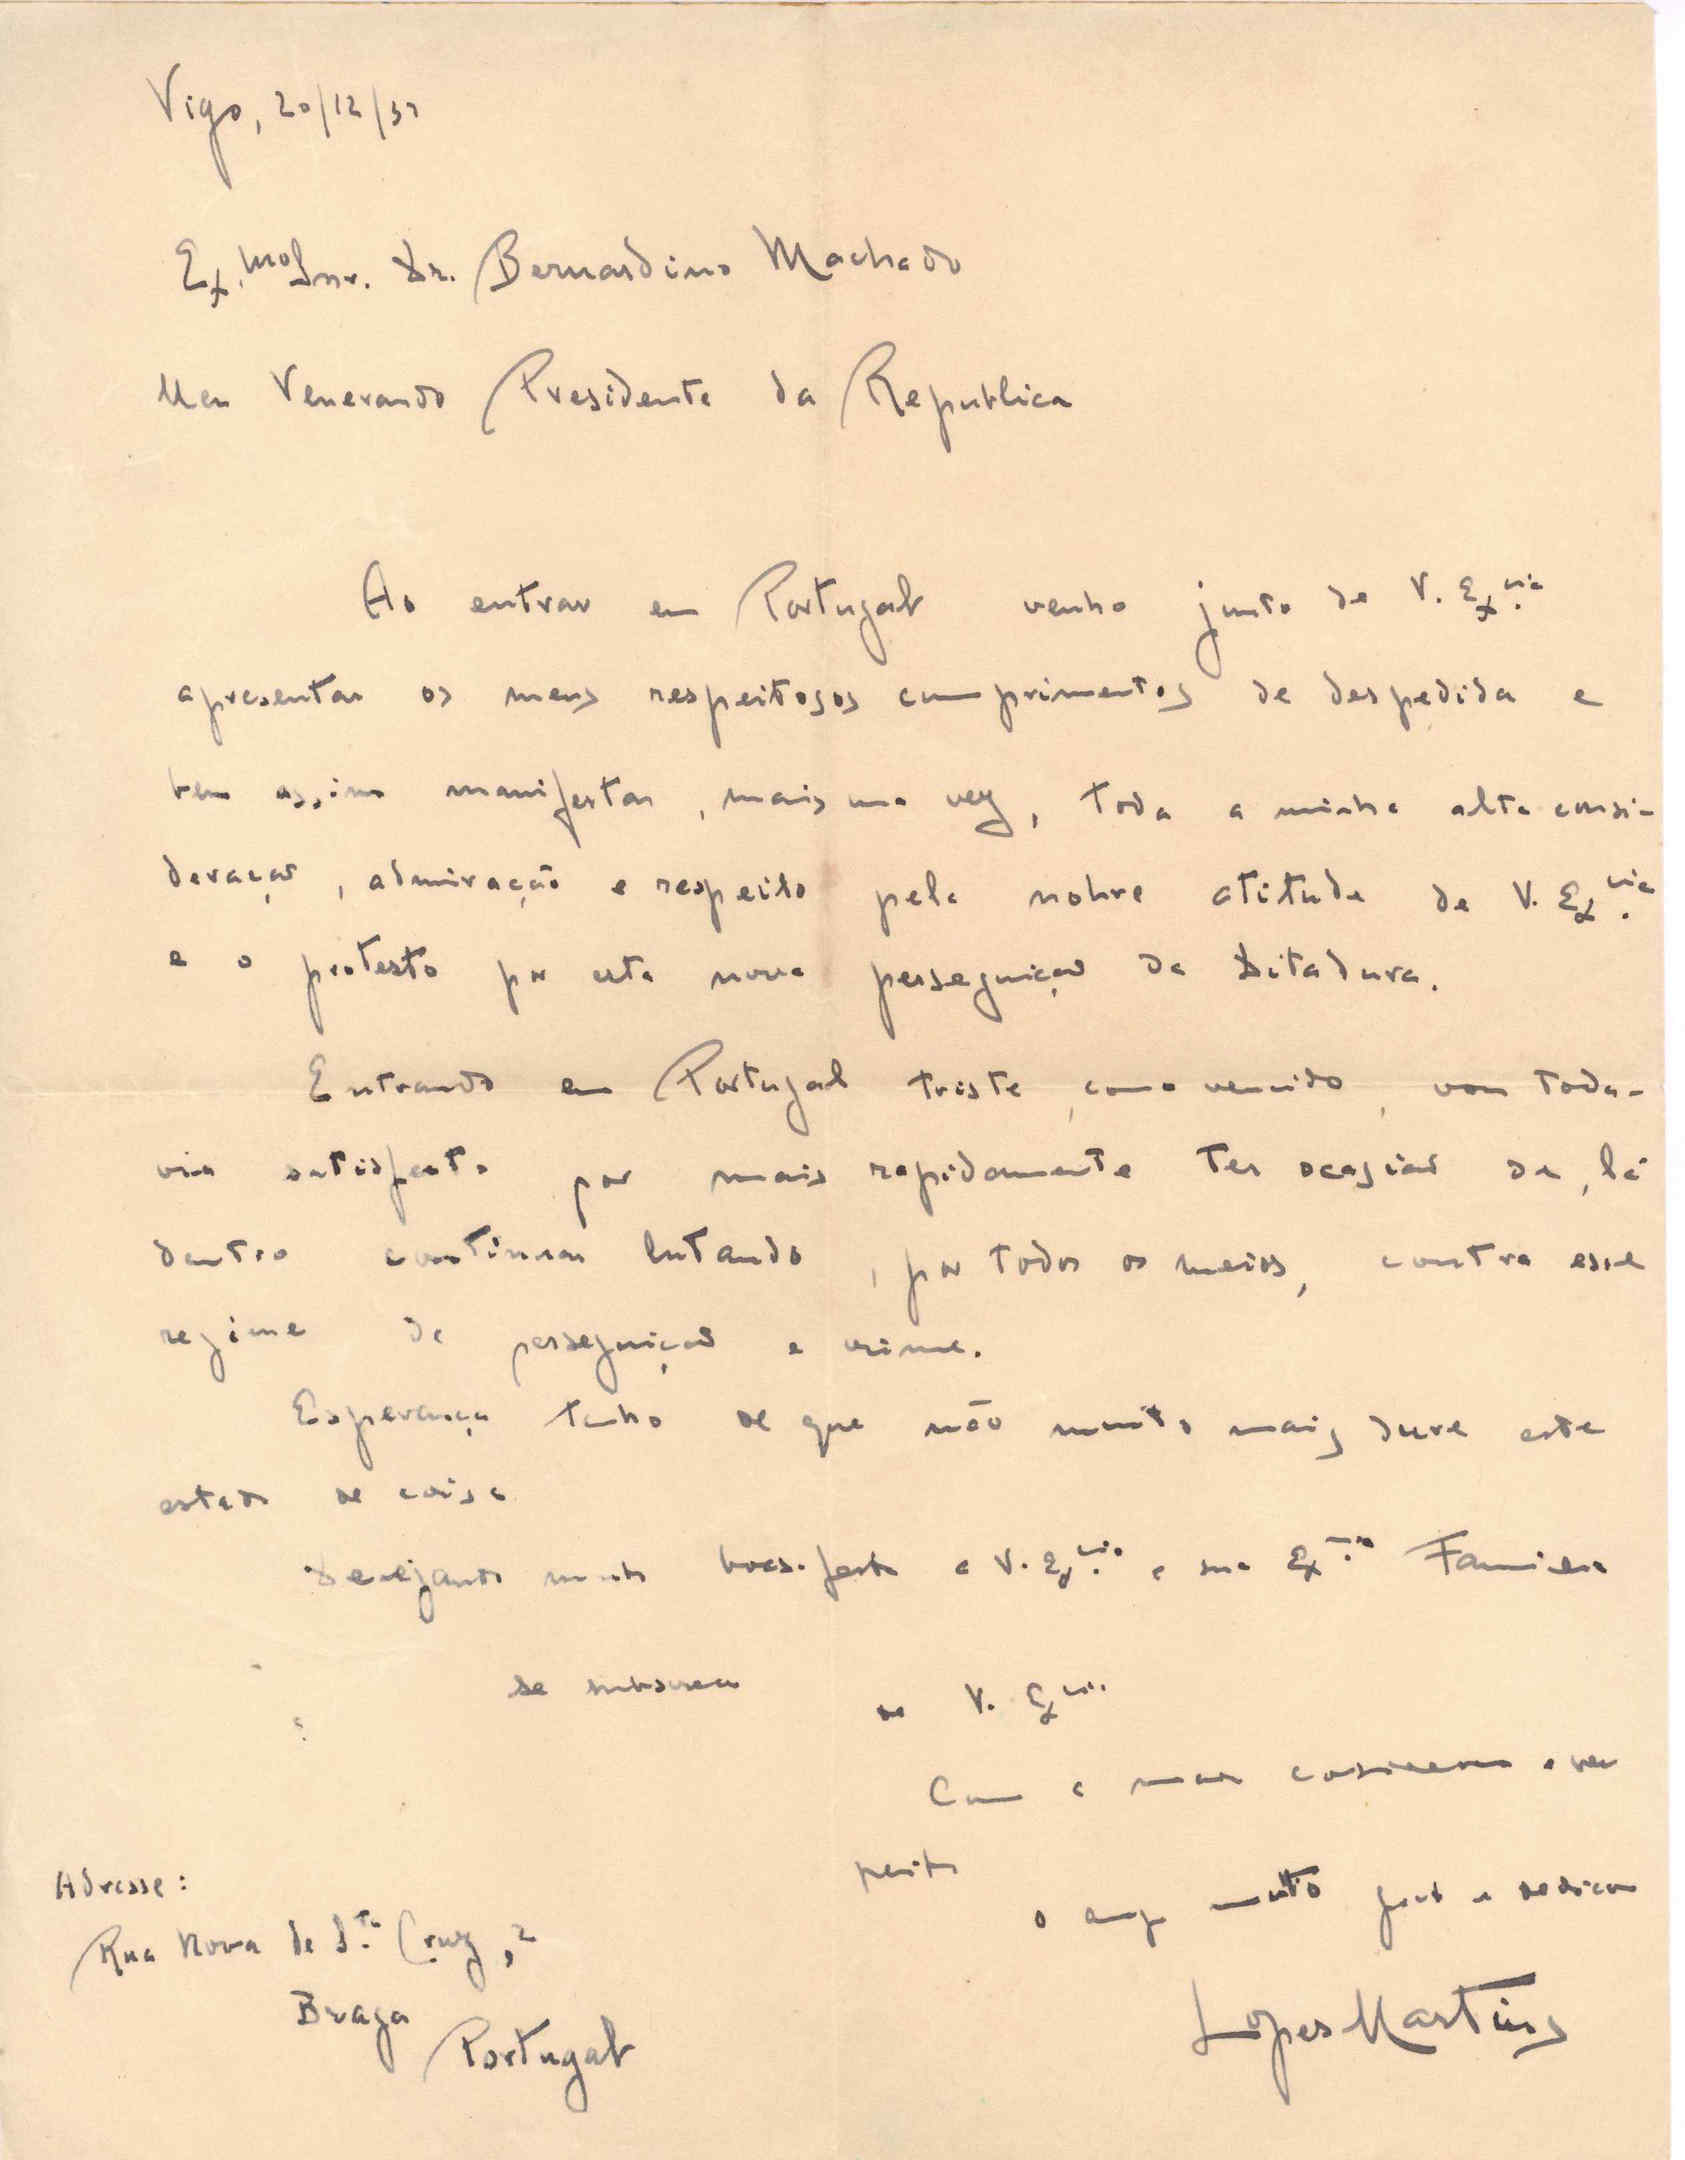 Vigo, 20/12/31
Ex.mo Snr. Dr. Bernardino Machado
Meu Venerando Presidente da Republica
Ao entrar em Portugal venho junto de V. Ex.cia
apresentar os meus respeitosos cumprimentos de despedida e
bem assim manifestar, mais uma vez, toda a minha alta consi-
deração, admiração e respeito pela nobre atitude de V. Ex.cia
e o protesto por esta nova perseguição da Ditadura.
Entrando em Portugal triste, como vencido, vou toda-
via satisfeito por mais rapidamente ter ocasião de, lá
dentro continuar lutando, por todos os meios, contra esse
regime de perseguição e crime.
Esperança tenho de que não muito mais dure este
estado de coisa
Desejando muito boas-festas a V. Ex.cia e sua Ex.ma Familia
se subscreve
de V. Ex.cia
Com a maior consideração e res
peito
o amgo muito grato e dedicado
Adresse:
Rua Nova de S.ta Cruz, 2
Braga
Portugal
Lopes Martins